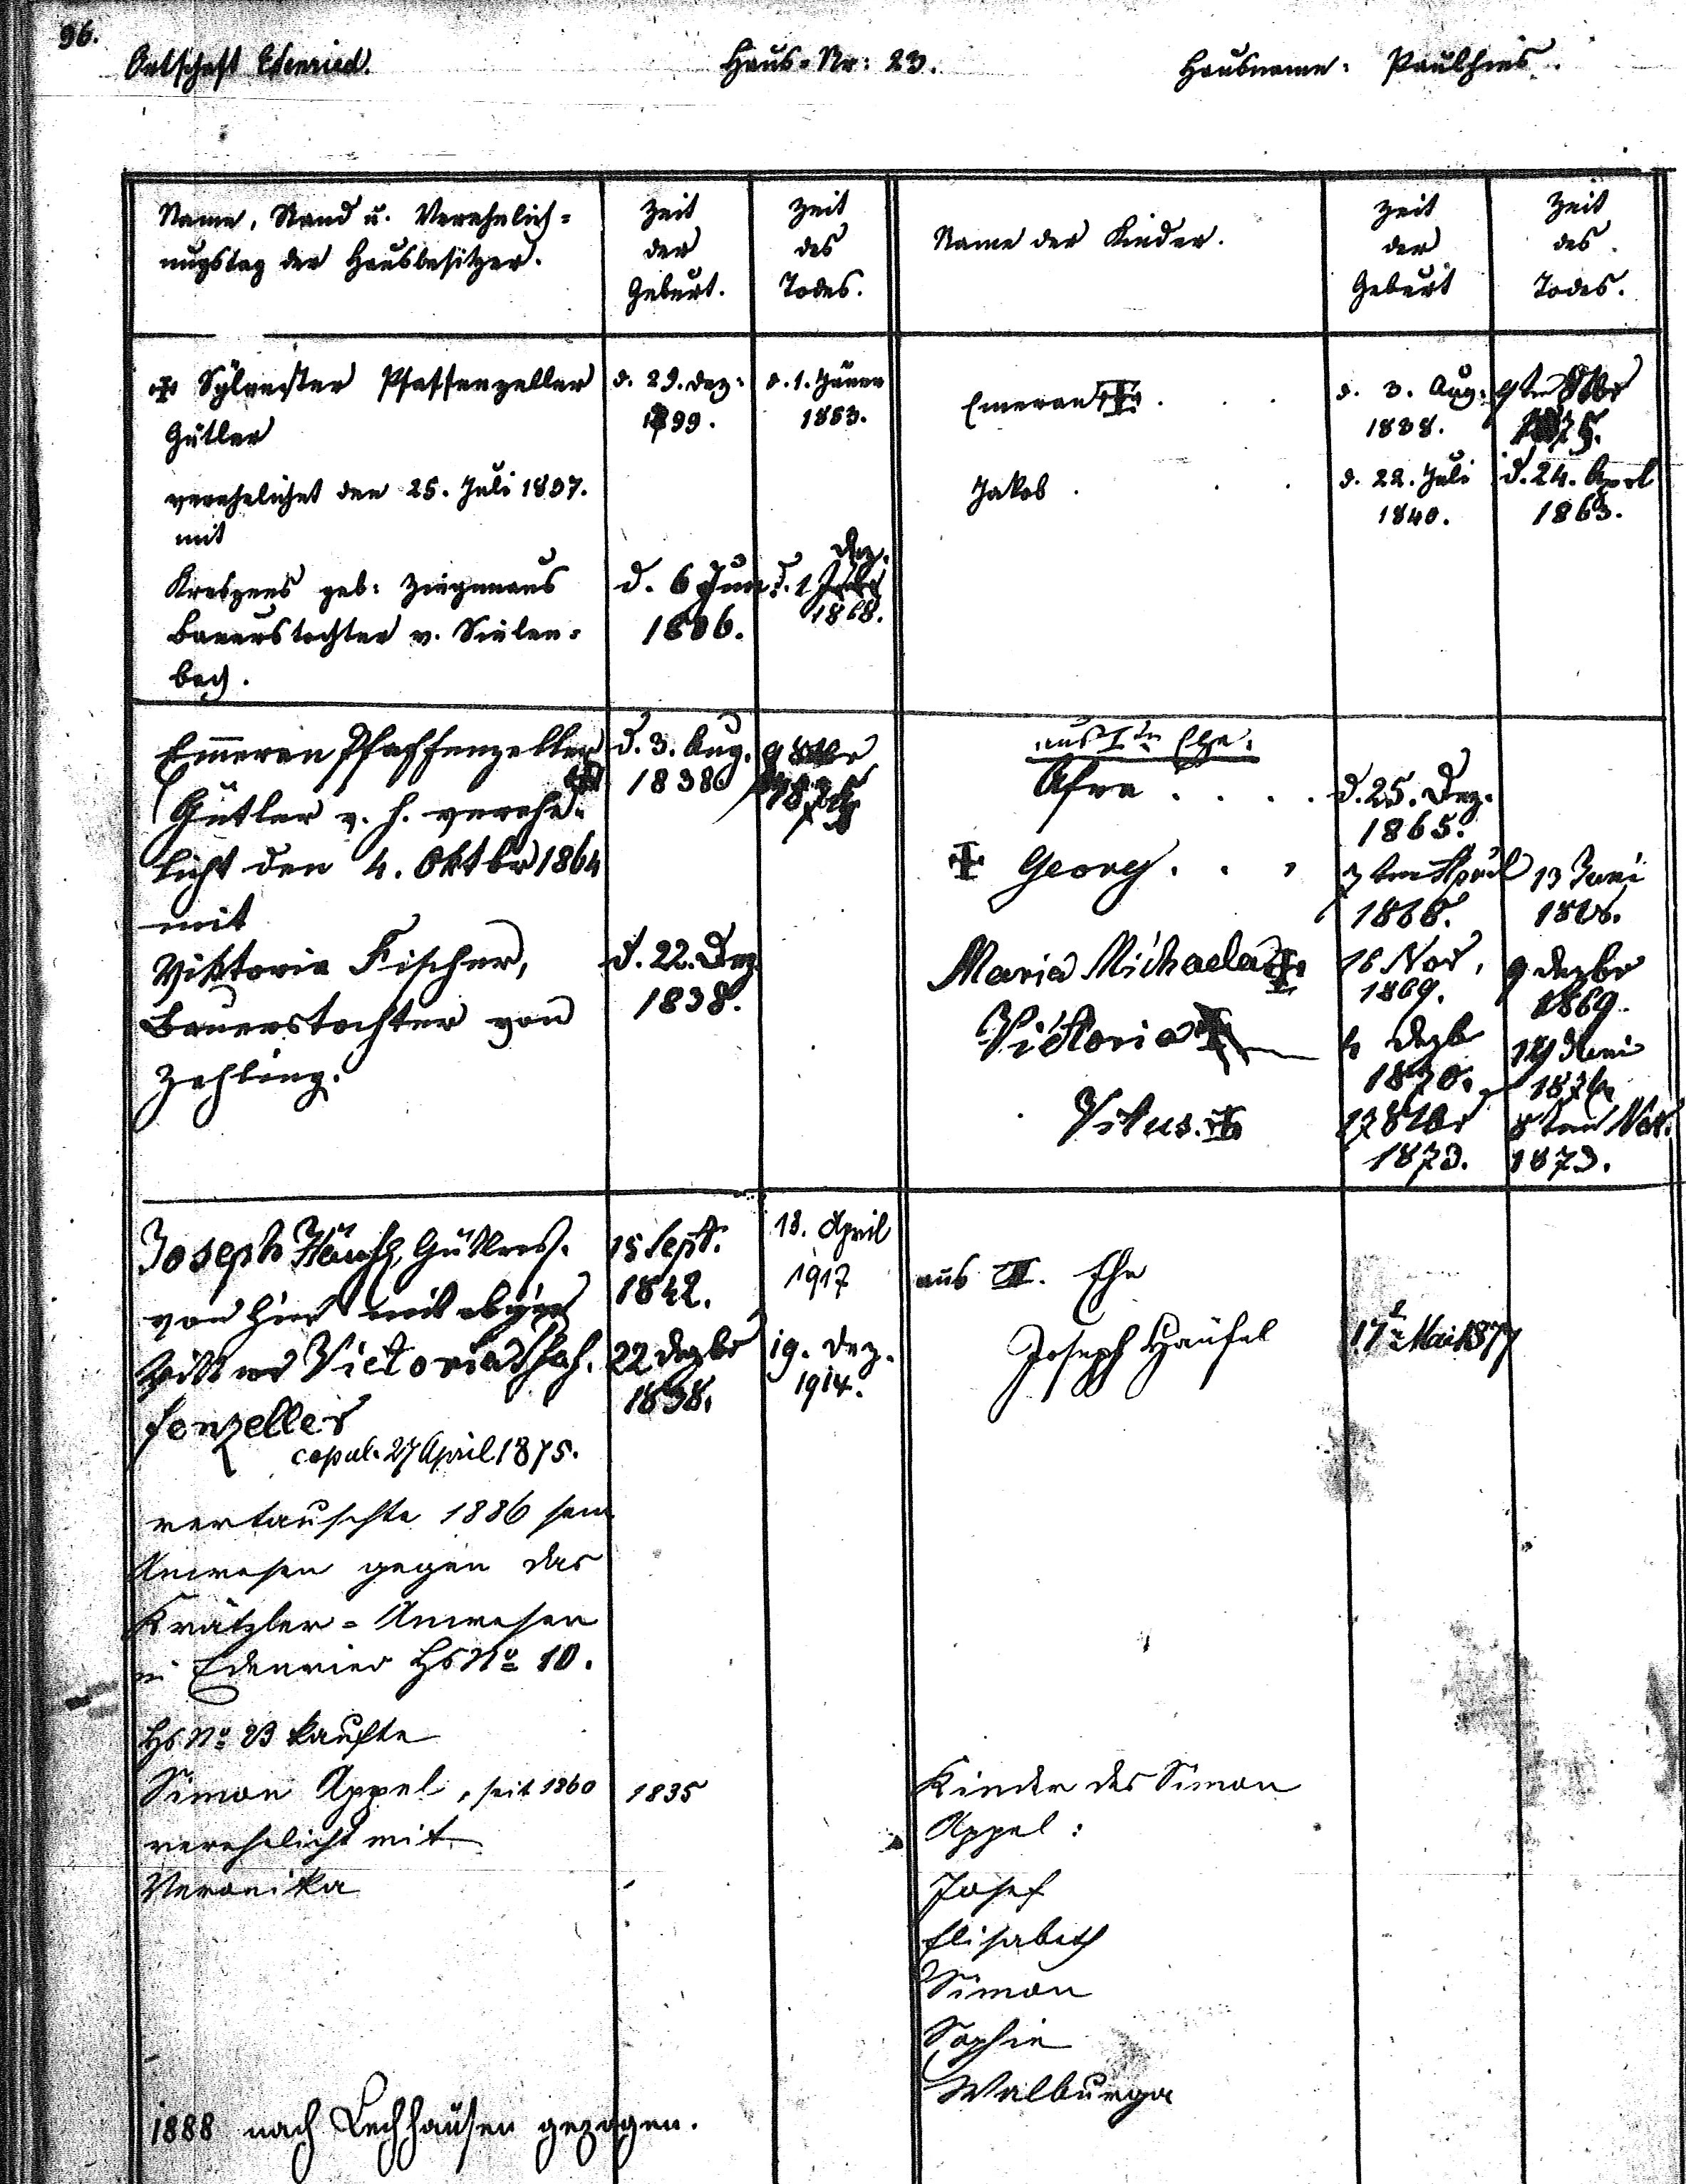 96.
Ortschaft Edenried. Haus-Nr: 23. Hausname: Paulhies.
Name, Stand u. Verehelich=
ungstag der Hausbesitzer.
Zeit
der
Geburt.
Zeit
des
Todes.
Name der Kinder.
Zeit
der
Geburt
Zeit
des
Todes.
Sylvester Pfaffenzeller
Gütler
verehelichet den 25. Juli 1837.
mit
Kreszens geb: Ziegenaus
Bauerstochter v. Sielen=
bach.
d. 29. Dez:
1799.
d. 6 Jun
1806.
d. 1. Jäner
1863.
Dez.
d. 1
1868.
Emeran
Jakob
d. 3. Aug.
1838.
d. 22. Juli
1840.
9ten 8tbr
1875.
d. 24. Aprl
1863.
Emmeran Pfaffenzeller
Gütler v. h. verehe=
licht den 4. Oktbr 1864
mit
Viktoria Fischer,
Bauerstochter von
Zahling.
d. 3. Aug.
1838
d. 22. Dez.
1838.
9 8tbr
aus I ter Ehe.
Afra
Georg
Maria Michaela
Victoria
Vitus.
d. 25. Dez.
1865.
7ten April
1868.
16 Nov.
1869.
4 Dezb
1870.
17 8tbr
1873.
13 Juni
1868.
9 Dezbr
1869.
Juni
8ten Nov.
1873.
Joseph Häusl, Gütlerss.
von hier mit obiger
Wittwe Victoria Pfaf.
fenzeller
copul. 27 April 1875.
15 Sept.
1842.
22 Dezbr
1838.
18. April
1917
19. Dez.
1914.
aus II. Ehe
Joseph Häusel
17t Mai 1877
vertauschte 1886 sein
Anwesen gegen das
Krätzler=Anwesen
in Edenried Hs No 10.
Hs No 23 kaufte
Simon Appel, seit 1860
verehelicht mit
Veronika
1835
Kinder des Simon
Appel:
Josef
Elisabeth
Simon
Sophie
Walburga
1888 nach Lechhausen gezogen.